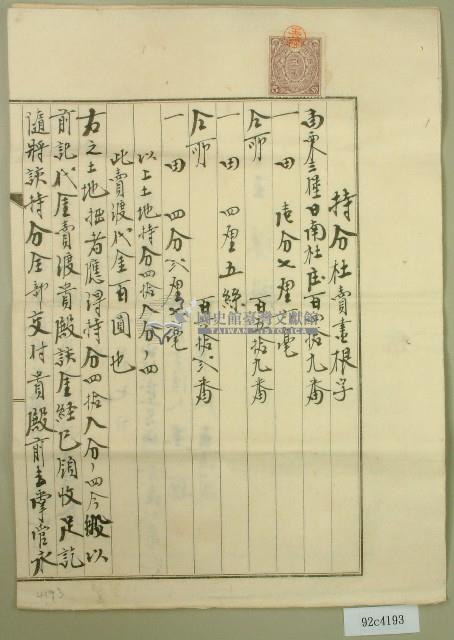 持分杜賣盡根字
苗栗三堡日南社庄百四拾九番
一 田 壹分七厘〃毫
仝所 百五拾九番
一 田 四厘五絲
仝所 百六拾弍番
一 田 四分弍厘七毫
以上土地持分四拾八分ノ四
此賣渡代金百圓也
右之土地拙者應得持分四拾八分ノ四今搬以
前記代金賣渡貴殿該金経已領收足訖
隨將該持分全部交付貴殿前去掌管永
國史館臺灣文獻館
TAIWAN HISTORICA
4193
92c4193